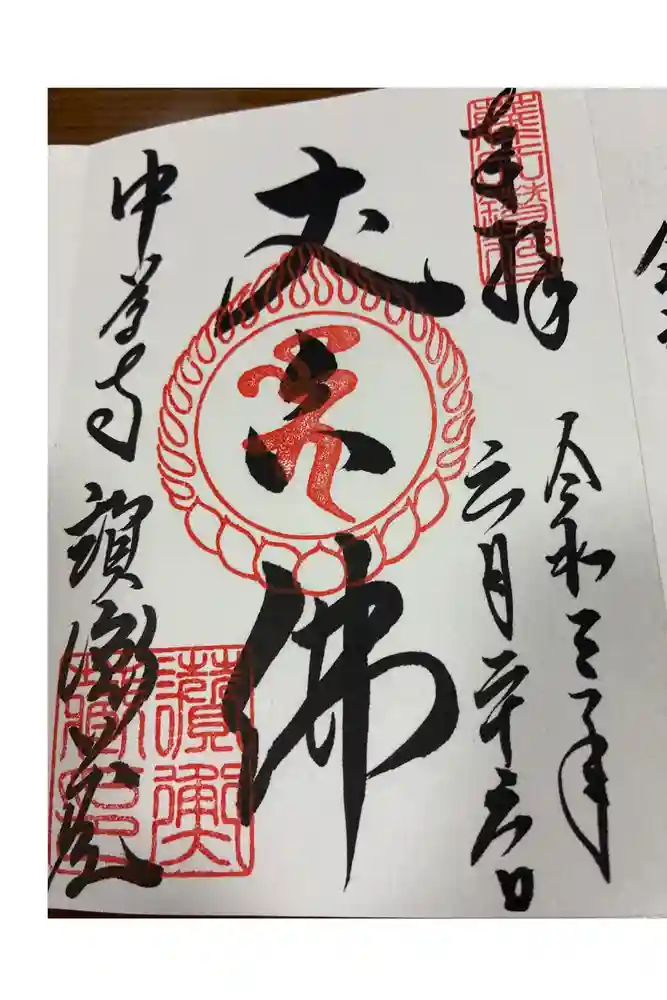 奉拝
令和三年
六月二十六日
丈六佛
中尊寺 讃衡蔵
讃衡
蔵印